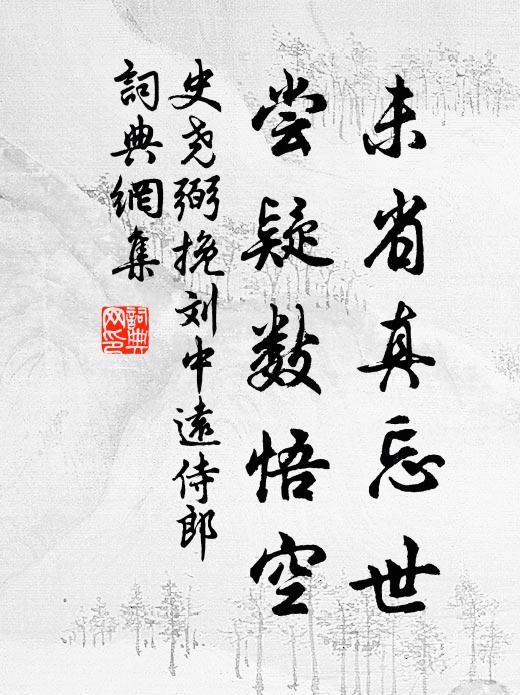 未省真忘世
尝疑数悟空
史尧弼挽刘中遠侍郎
詞典網集
詞典网印